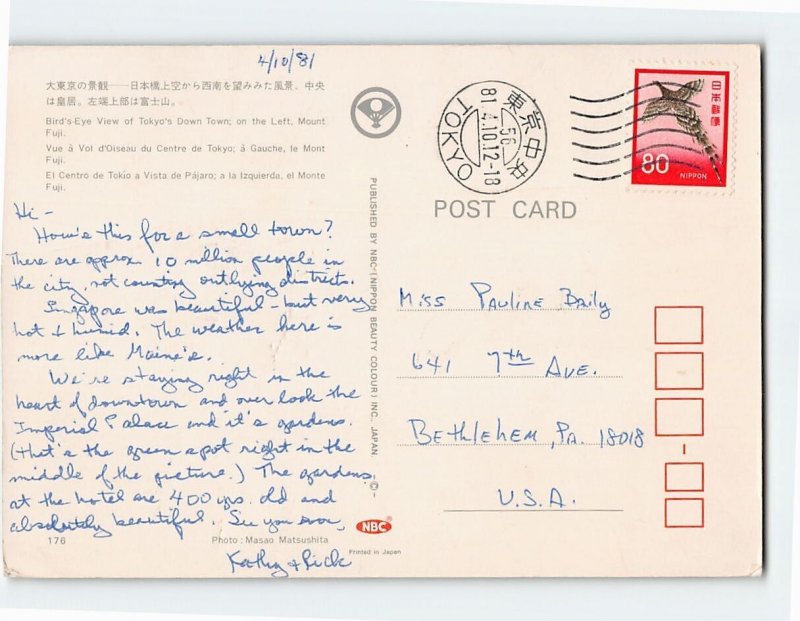 4/10/81
大東京の景観――日本橋上空から西南を望みみた風景、中央
は皇居。左端上部は富士山。
Bird's-Eye View of Tokyo's Down Town; on the Left, Mount
Fuji.
Vue à Vol d'Oiseau du Centre de Tokyo; à Gauche, le Mont
Fuji.
El Centro de Tokio a Vista de Pájaro; a la Izquierda, el Monte
Fuji.
Hi -
How's this for a small town?
There are approx. 10 million people in
the city, not counting outlying districts.
Singapore was beautiful - but very
hot & humid. The weather here is
more like Maine's.
We're staying right in the
heart of downtown and over look the
Imperial Palace and it's gardens.
(that's the green spot right in the
middle of the picture.) The gardens
at the hotel are 400 yrs. old and
absolutely beautiful. See you soon,
Kathy & Rick
176
Photo: Masao Matsushita
PUBLISHED BY NBC (NIPPON BEAUTY COLOUR) INC. JAPAN
-©-
NBC
Printed in Japan
東京中央
56
81.4.10.12-18
TOKYO
日本郵便
80
NIPPON
POST CARD
Miss Pauline Baily
641 7th Ave.
Bethlehem, Pa. 18018
U.S.A.